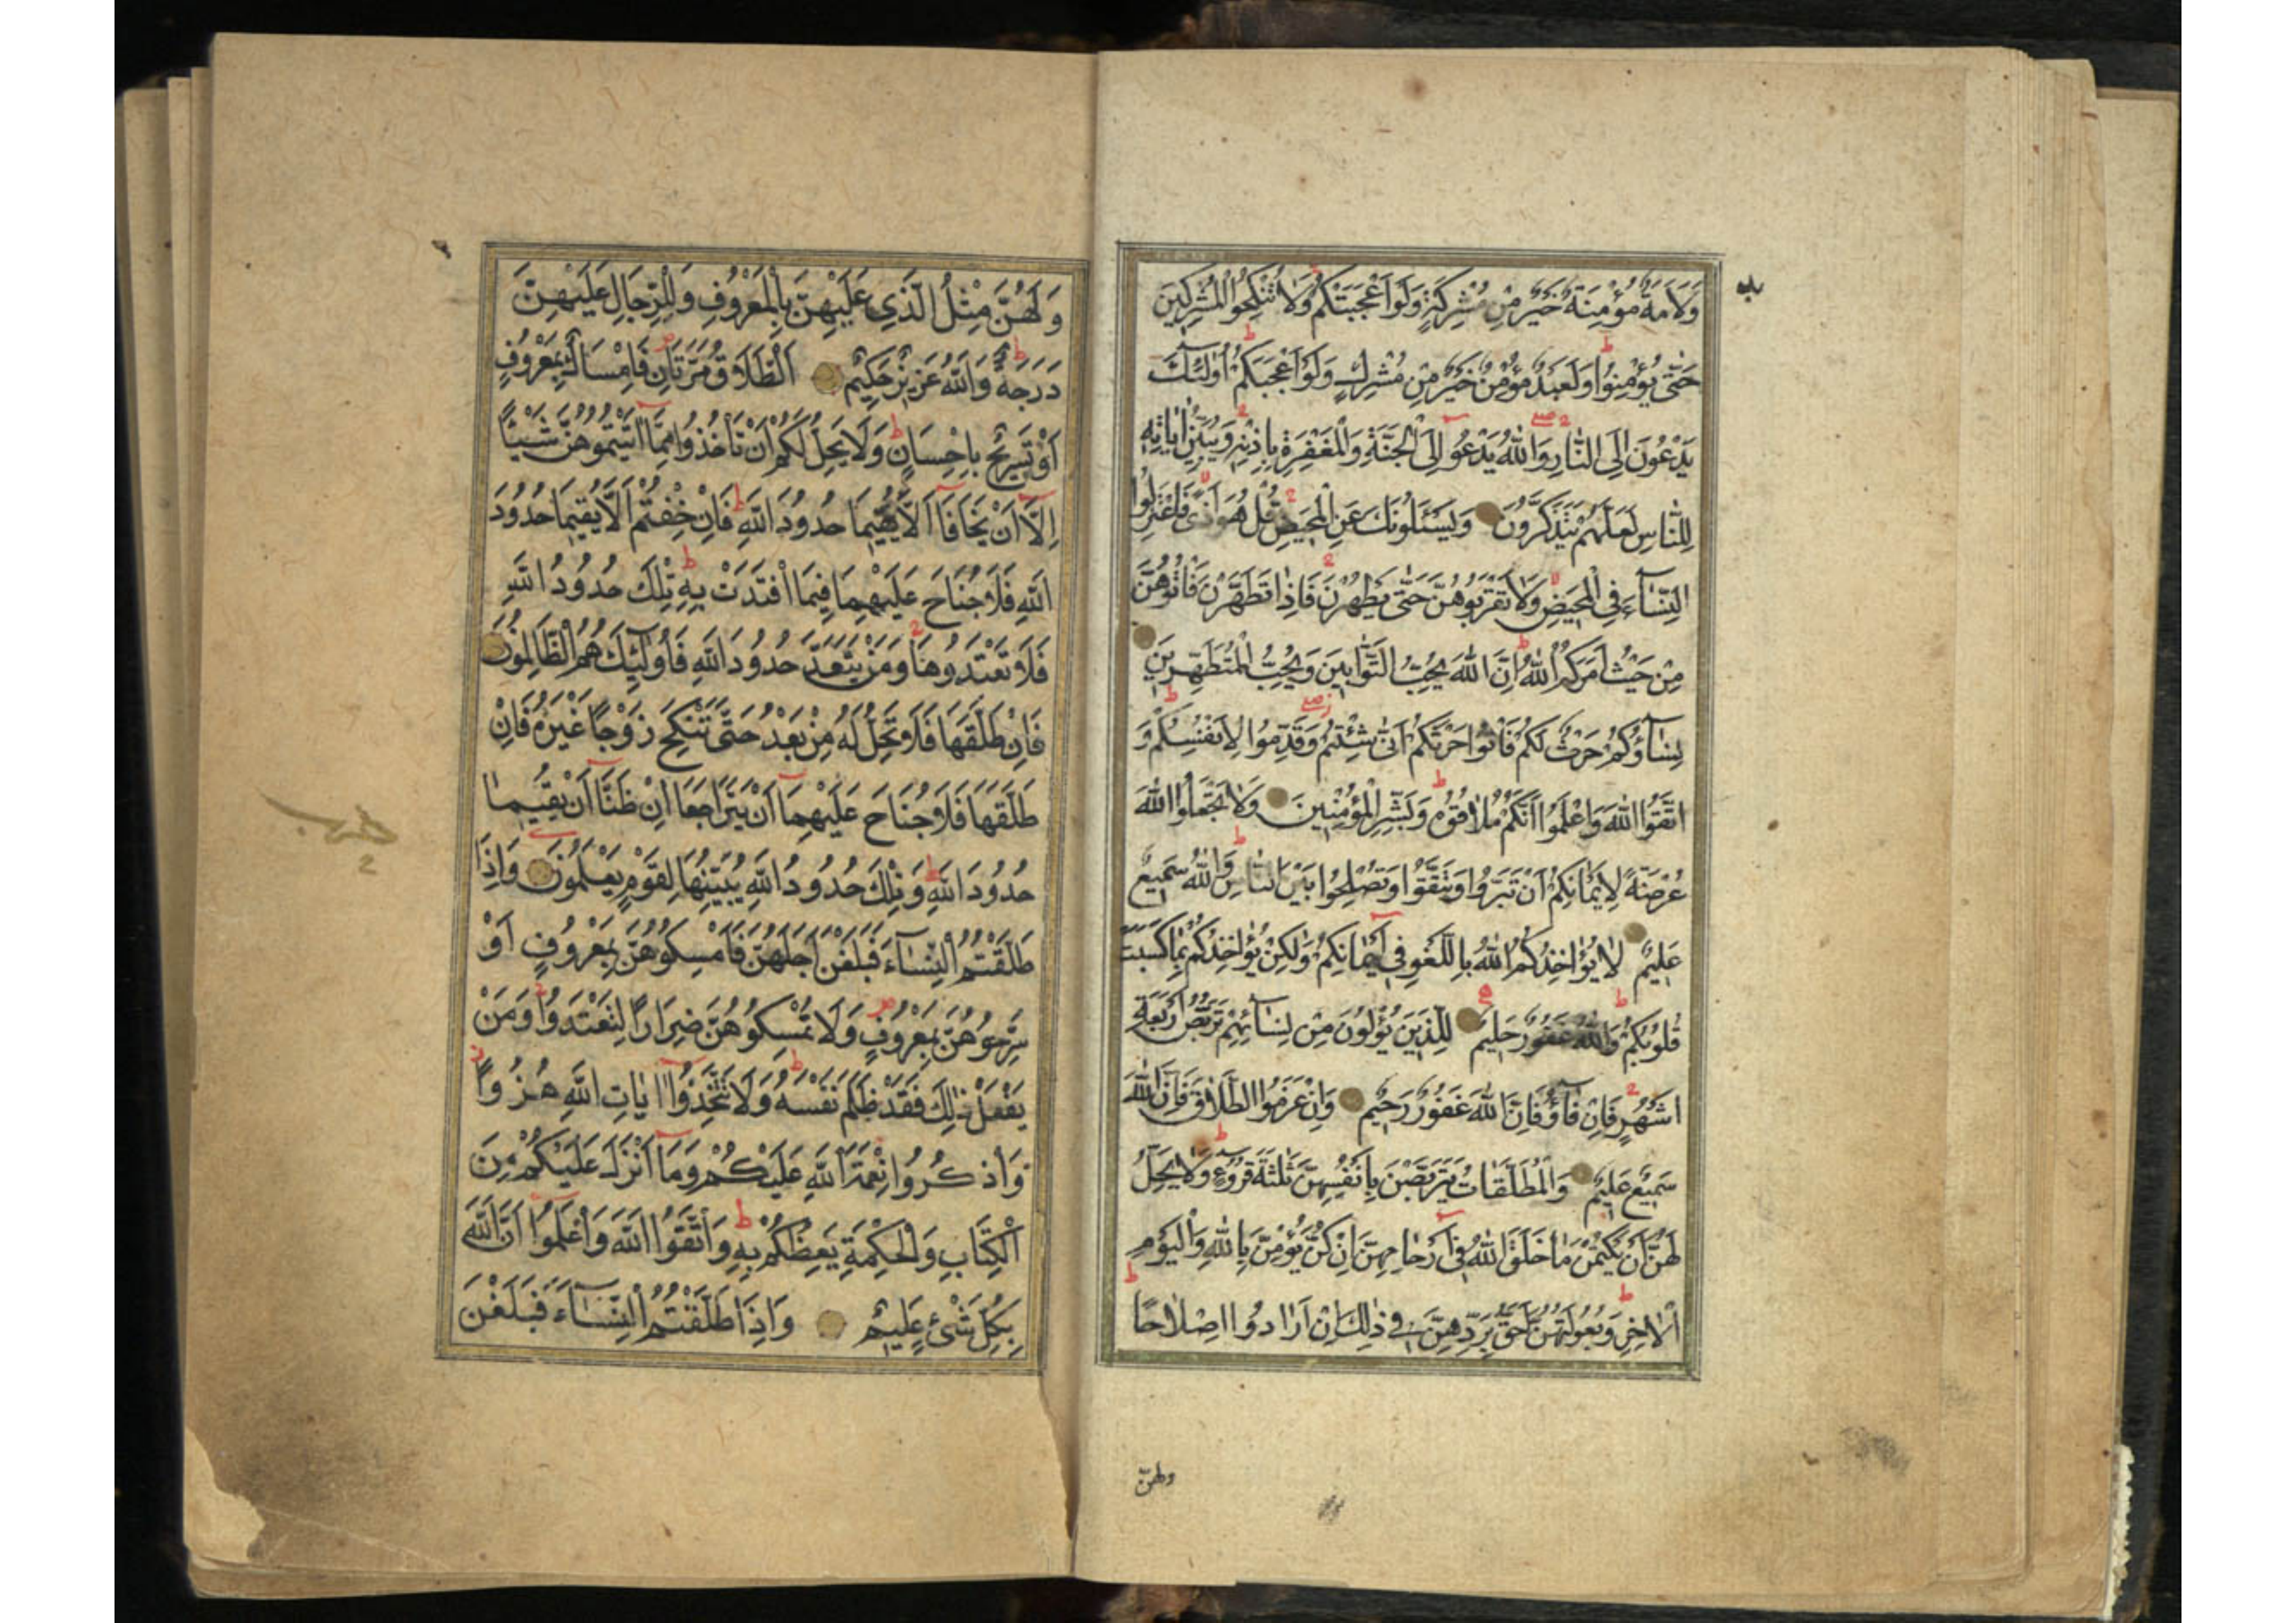 وَلَاَمَةٌ مُؤْمِنَةٌ خَيْرٌ مِنْ مُشْرِكَةٍ وَلَوْ اَعْجَبَتْكُمْ وَلَا تُنْكِحُوا الْمُشْرِكِينَ
حَتّٰى يُؤْمِنُوا وَلَعَبْدٌ مُؤْمِنٌ خَيْرٌ مِنْ مُشْرِكٍ وَلَوْ اَعْجَبَكُمْ اُولٰئِكَ
يَدْعُونَ اِلَى النَّارِ وَاللّٰهُ يَدْعُوا اِلَى الْجَنَّةِ وَالْمَغْفِرَةِ بِاِذْنِهِ وَيُبَيِّنُ اٰيَاتِهِ
لِلنَّاسِ لَعَلَّهُمْ يَتَذَكَّرُونَ وَيَسْئَلُونَكَ عَنِ الْمَحِيضِ قُلْ هُوَ اَذًى فَاعْتَزِلُوا
النِّسَآءَ فِي الْمَحِيضِ وَلَا تَقْرَبُوهُنَّ حَتّٰى يَطْهُرْنَ فَاِذَا تَطَهَّرْنَ فَاْتُوهُنَّ
مِنْ حَيْثُ اَمَرَكُمُ اللّٰهُ اِنَّ اللّٰهَ يُحِبُّ التَّوَّابِينَ وَيُحِبُّ الْمُتَطَهِّرِينَ
نِسَآؤُكُمْ حَرْثٌ لَكُمْ فَاْتُوا حَرْثَكُمْ اَنّٰى شِئْتُمْ وَقَدِّمُوا لِاَنْفُسِكُمْ وَ
اتَّقُوا اللّٰهَ وَاعْلَمُوا اَنَّكُمْ مُلَاقُوهُ وَبَشِّرِ الْمُؤْمِنِينَ وَلَا تَجْعَلُوا اللّٰهَ
عُرْضَةً لِاَيْمَانِكُمْ اَنْ تَبَرُّوا وَتَتَّقُوا وَتُصْلِحُوا بَيْنَ النَّاسِ وَاللّٰهُ سَمِيعٌ
عَلِيمٌ لَا يُؤَاخِذُكُمُ اللّٰهُ بِاللَّغْوِ فِي اَيْمَانِكُمْ وَلٰكِنْ يُؤَاخِذُكُمْ بِمَا كَسَبَتْ
قُلُوبُكُمْ وَاللّٰهُ غَفُورٌ حَلِيمٌ لِلَّذِينَ يُؤْلُونَ مِنْ نِسَآئِهِمْ تَرَبُّصُ اَرْبَعَةِ
اَشْهُرٍ فَاِنْ فَآؤُ فَاِنَّ اللّٰهَ غَفُورٌ رَحِيمٌ وَاِنْ عَزَمُوا الطَّلَاقَ فَاِنَّ اللّٰهَ
سَمِيعٌ عَلِيمٌ وَالْمُطَلَّقَاتُ يَتَرَبَّصْنَ بِاَنْفُسِهِنَّ ثَلٰثَةَ قُرُوءٍ وَلَا يَحِلُّ
لَهُنَّ اَنْ يَكْتُمْنَ مَا خَلَقَ اللّٰهُ فِي اَرْحَامِهِنَّ اِنْ كُنَّ يُؤْمِنَّ بِاللّٰهِ وَالْيَوْمِ
الْاٰخِرِ وَبُعُولَتُهُنَّ اَحَقُّ بِرَدِّهِنَّ فِي ذٰلِكَ اِنْ اَرَادُوا اِصْلَاحًا
ولهنّ
وَلَهُنَّ مِثْلُ الَّذِي عَلَيْهِنَّ بِالْمَعْرُوفِ وَلِلرِّجَالِ عَلَيْهِنَّ
دَرَجَةٌ وَاللّٰهُ عَزِيزٌ حَكِيمٌ اَلطَّلَاقُ مَرَّتَانِ فَاِمْسَاكٌ بِمَعْرُوفٍ
اَوْ تَسْرِيحٌ بِاِحْسَانٍ وَلَا يَحِلُّ لَكُمْ اَنْ تَأْخُذُوا مِمَّا اٰتَيْتُمُوهُنَّ شَيْئًا
اِلَّا اَنْ يَخَافَا اَلَّا يُقِيمَا حُدُودَ اللّٰهِ فَاِنْ خِفْتُمْ اَلَّا يُقِيمَا حُدُودَ
اللّٰهِ فَلَا جُنَاحَ عَلَيْهِمَا فِيمَا افْتَدَتْ بِهِ تِلْكَ حُدُودُ اللّٰهِ
فَلَا تَعْتَدُوهَا وَمَنْ يَتَعَدَّ حُدُودَ اللّٰهِ فَاُولٰئِكَ هُمُ الظَّالِمُونَ
فَاِنْ طَلَّقَهَا فَلَا تَحِلُّ لَهُ مِنْ بَعْدُ حَتَّى تَنْكِحَ زَوْجًا غَيْرَهُ فَاِنْ
طَلَّقَهَا فَلَا جُنَاحَ عَلَيْهِمَا اَنْ يَتَرَاجَعَا اِنْ ظَنَّا اَنْ يُقِيمَا
حُدُودَ اللّٰهِ وَتِلْكَ حُدُودُ اللّٰهِ يُبَيِّنُهَا لِقَوْمٍ يَعْلَمُونَ وَاِذَا
طَلَّقْتُمُ النِّسَآءَ فَبَلَغْنَ اَجَلَهُنَّ فَاَمْسِكُوهُنَّ بِمَعْرُوفٍ اَوْ
سَرِّحُوهُنَّ بِمَعْرُوفٍ وَلَا تُمْسِكُوهُنَّ ضِرَارًا لِتَعْتَدُوا وَمَنْ
يَفْعَلْ ذٰلِكَ فَقَدْ ظَلَمَ نَفْسَهُ وَلَا تَتَّخِذُوا اٰيَاتِ اللّٰهِ هُزُوًا
وَاذْكُرُوا نِعْمَةَ اللّٰهِ عَلَيْكُمْ وَمَا اَنْزَلَ عَلَيْكُمْ مِنَ
الْكِتَابِ وَالْحِكْمَةِ يَعِظُكُمْ بِهِ وَاتَّقُوا اللّٰهَ وَاعْلَمُوا اَنَّ اللّٰهَ
بِكُلِّ شَيْءٍ عَلِيمٌ وَاِذَا طَلَّقْتُمُ النِّسَآءَ فَبَلَغْنَ